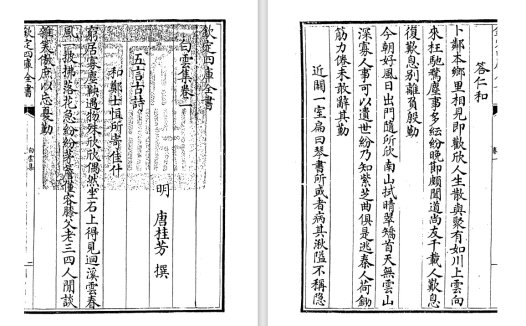 欽定四庫全書
白雲集卷一
明 唐桂芳 撰
五言古詩
和鄭士恒所寄佳什
窮居寡塵鞅遇物殊欣欣偶然坐石上得見迴溪雲春
風一披拂落花急紛紛茅簷僅容膝父老三四人閒談
雜笑傲庶以忘憂勤
欽定四庫全書
白雲集
答仁和
卜鄰本鄉里相見即歡欣人生散與聚有如川上雲向
來枉馳騖塵事多紜紛晚即頗聞道尚友千載人歎息
復歎息別離負殷勤
今朝好風日出門隨所欣南山拭晴翠矯首天無雲山
深寡人事可以遺世紛乃知紫芝曲俱是逃秦人荷鋤
筋力倦未敢辭其勤
近闢一室扁曰琴書所或者病其湫隘不稱隱